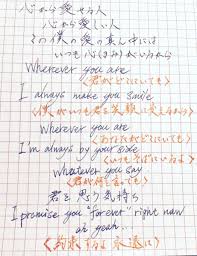 心から愛せる人
心から愛しい人
この僕の愛の真ん中には
いつも心(きみ)がいるから
Wherever you are
<君がどこにいても>
I always make you smile
<僕がいつも君を笑顔に変えるから>
Wherever you are
<あなたがどこにいても>
I'm always by your side
<いつもそばにいるよ>
Whatever you say
<君が何を言っても>
君を思う気持ち
I promise you "forever" right now
ah yeah.
<約束するよ永遠に>